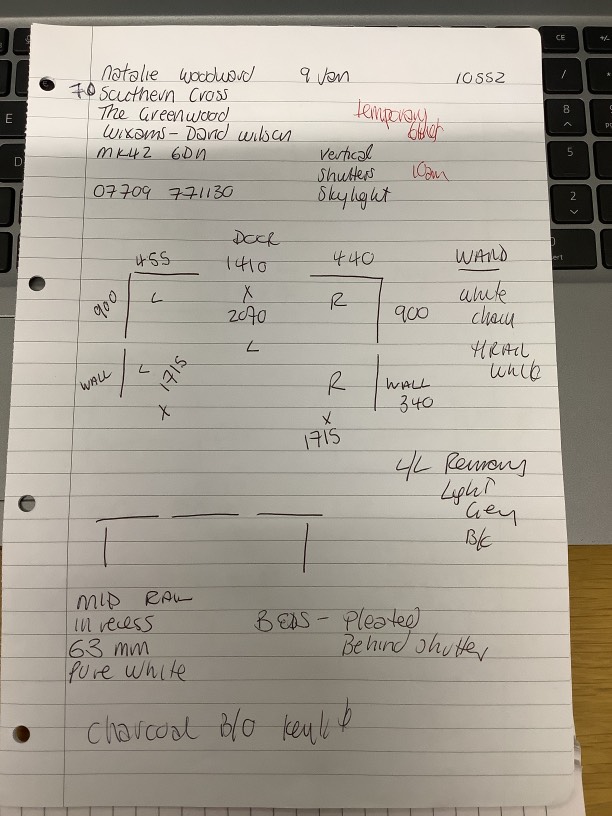 Natalie Woodward 9 Jan 10552
70 Southern Cross
The Greenwood temporary
Wixams - David Wilson
MK42 6DN vertical
shutters 10am
07709 771130 Skylight
DOOR
455 1410 440 WAND
900 L X R 900 white
2070 chain
L HRAIL
WALL L 1715 R WALL white
X 340
X
1715
L/L Remony
Light
Grey
B/C
MID RAIL
in recess BEDS - Pleated
63 mm Behind shutter
Pure white
charcoal B/O